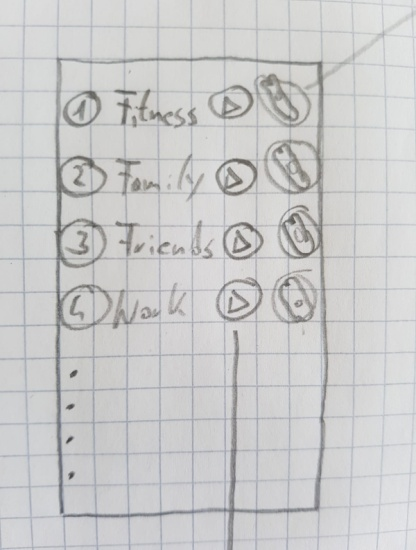 1 Fitness
2 Family
3 Friends
4 Work